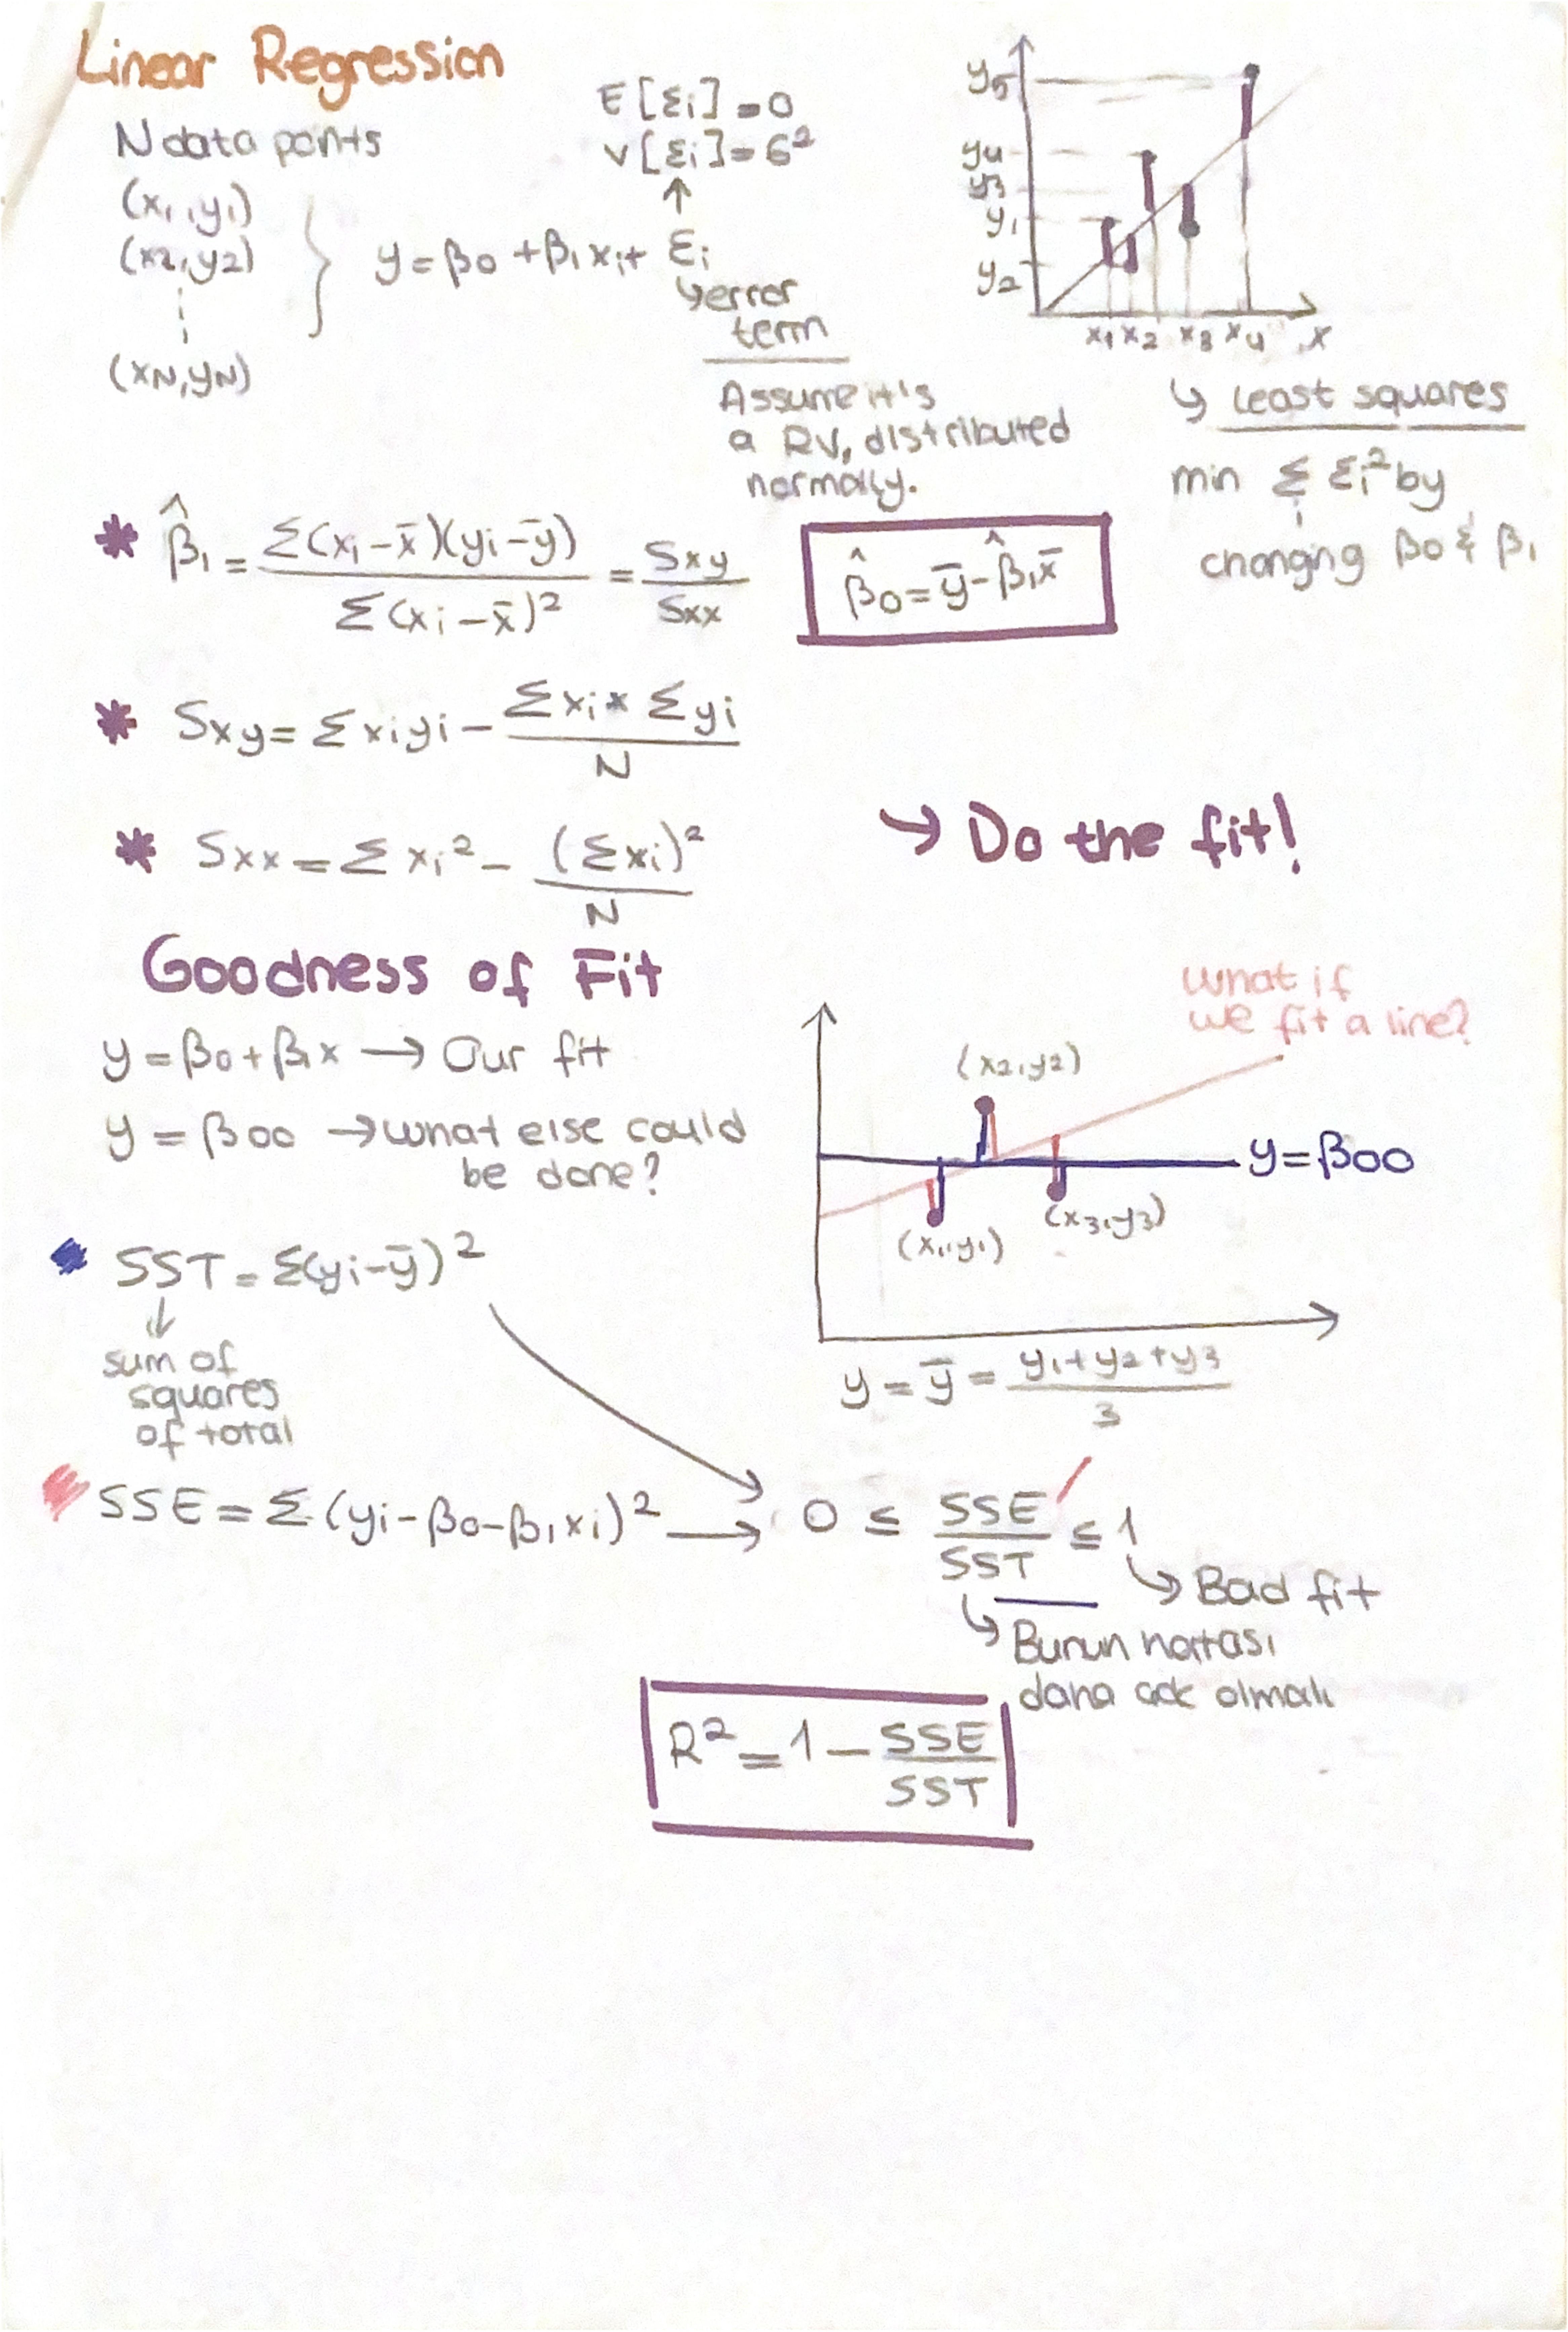 Linear Regression
N data ponts
(x1,y1)
(x2,y2)
(xN,yN)
E[εi]=0
V[εi]=6²
↑
y=β0+β1xi+ εi
↳error
term
Assume it's
a RV, distributed
normally.
y5
y4
y3
y1
y2
x1 x2 x3 x4 x
↳ least squares
min Σ εi² by
i
changing β0 & β1
* β̂1 = Σ(xi-x̄)(yi-ȳ) / Σ(xi-x̄)² = Sxy / Sxx
β̂0=ȳ-β̂1x̄
* Sxy= Σxiyi - Σxi * Σyi / N
* Sxx = Σxi² - (Σxi)² / N
→ Do the fit!
Goodness of Fit
y=β0+β1x → Our fit
y = β00 → what else could
be done?
What if
we fit a line?
(x2,y2)
y=β00
(x1,y1)
(x3,y3)
y = ȳ = y1+y2+y3 / 3
SST = Σ(yi-ȳ)²
↓
sum of
squares
of total
SSE = Σ(yi-β0-β1xi)² → 0 ≤ SSE / SST ≤ 1
↳ Bad fit
↳ Bunun hatası
daha çok olmalı
R² = 1 - SSE / SST